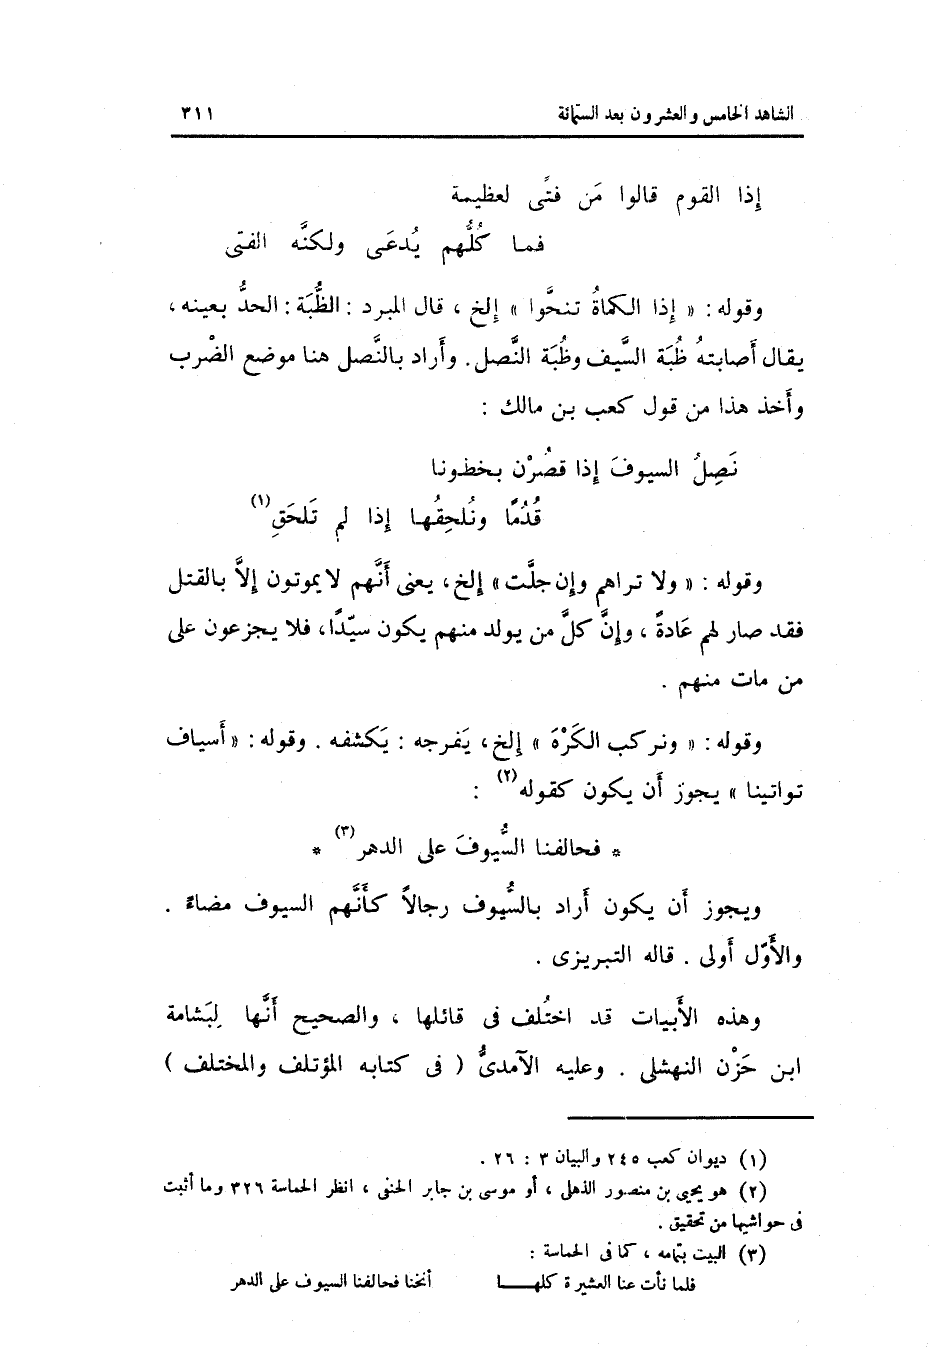 الشاهد الخامس والعشرون بعد الستمائة ٣١١
إذا القوم قالوا مَن فتًى لعظيمة
فما كُلُّهم يُدعَى ولكنَّه الفتى
وقوله: « إذا الكماةُ تنحَّوا » إلخ ، قال المبرد : الظُّبَة : الحدُّ بعينه ،
يقال أصابتهُ ظُبَة السَّيف وظُبَة النَّصل. وأراد بالنَّصل هنا موضع الضْرب
وأخذ هذا من قول كعب بن مالك :
نَصِلُ السيوفَ إذا قصُرْن بخطونا
قُدُمًا ونُلحِقُها إذا لم تَلحَقِ(١)
وقوله : « ولا تراهم وإن جلَّت » إلخ ، يعنى أنَّهم لا يموتون إلاَّ بالقتل
فقد صار لهم عَادةً ، وإنَّ كلَّ من يولد منهم يكون سيّدًا، فلا يجزعون على
من مات منهم .
وقوله : « ونركب الكَرْهَ » إلخ، يَفرجه : يَكشفه . وقوله : « أسياف
تواتينا » يجوز أن يكون كقوله(٢) :
* فحالفنا السُّيوفَ على الدهر(٣) *
ويجوز أن يكون أراد بالسُّيوف رجالاً كأنَّهم السيوف مضاءً .
والأوّل أولى . قاله التبريزى .
وهذه الأبيات قد اختُلف فى قائلها ، والصحيح أنَّها لِبَشامة
ابن حَزْن النهشلى . وعليه الآمدىُّ ( فى كتابه المؤتلف والمختلف )
(١) ديوان كعب ٢٤٥ والبيان ٣ : ٢٦ .
(٢) هو يحيى بن منصور الذهلى ، أو موسى بن جابر الحنفى ، انظر الحماسة ٣٢٦ وما أثبت
فى حواشيها من تحقيق .
(٣) البيت بتمامه ، كما فى الحماسة :
فلما نأت عنا العشيرة كلهـــا أنخنا فحالفنا السيوف على الدهر